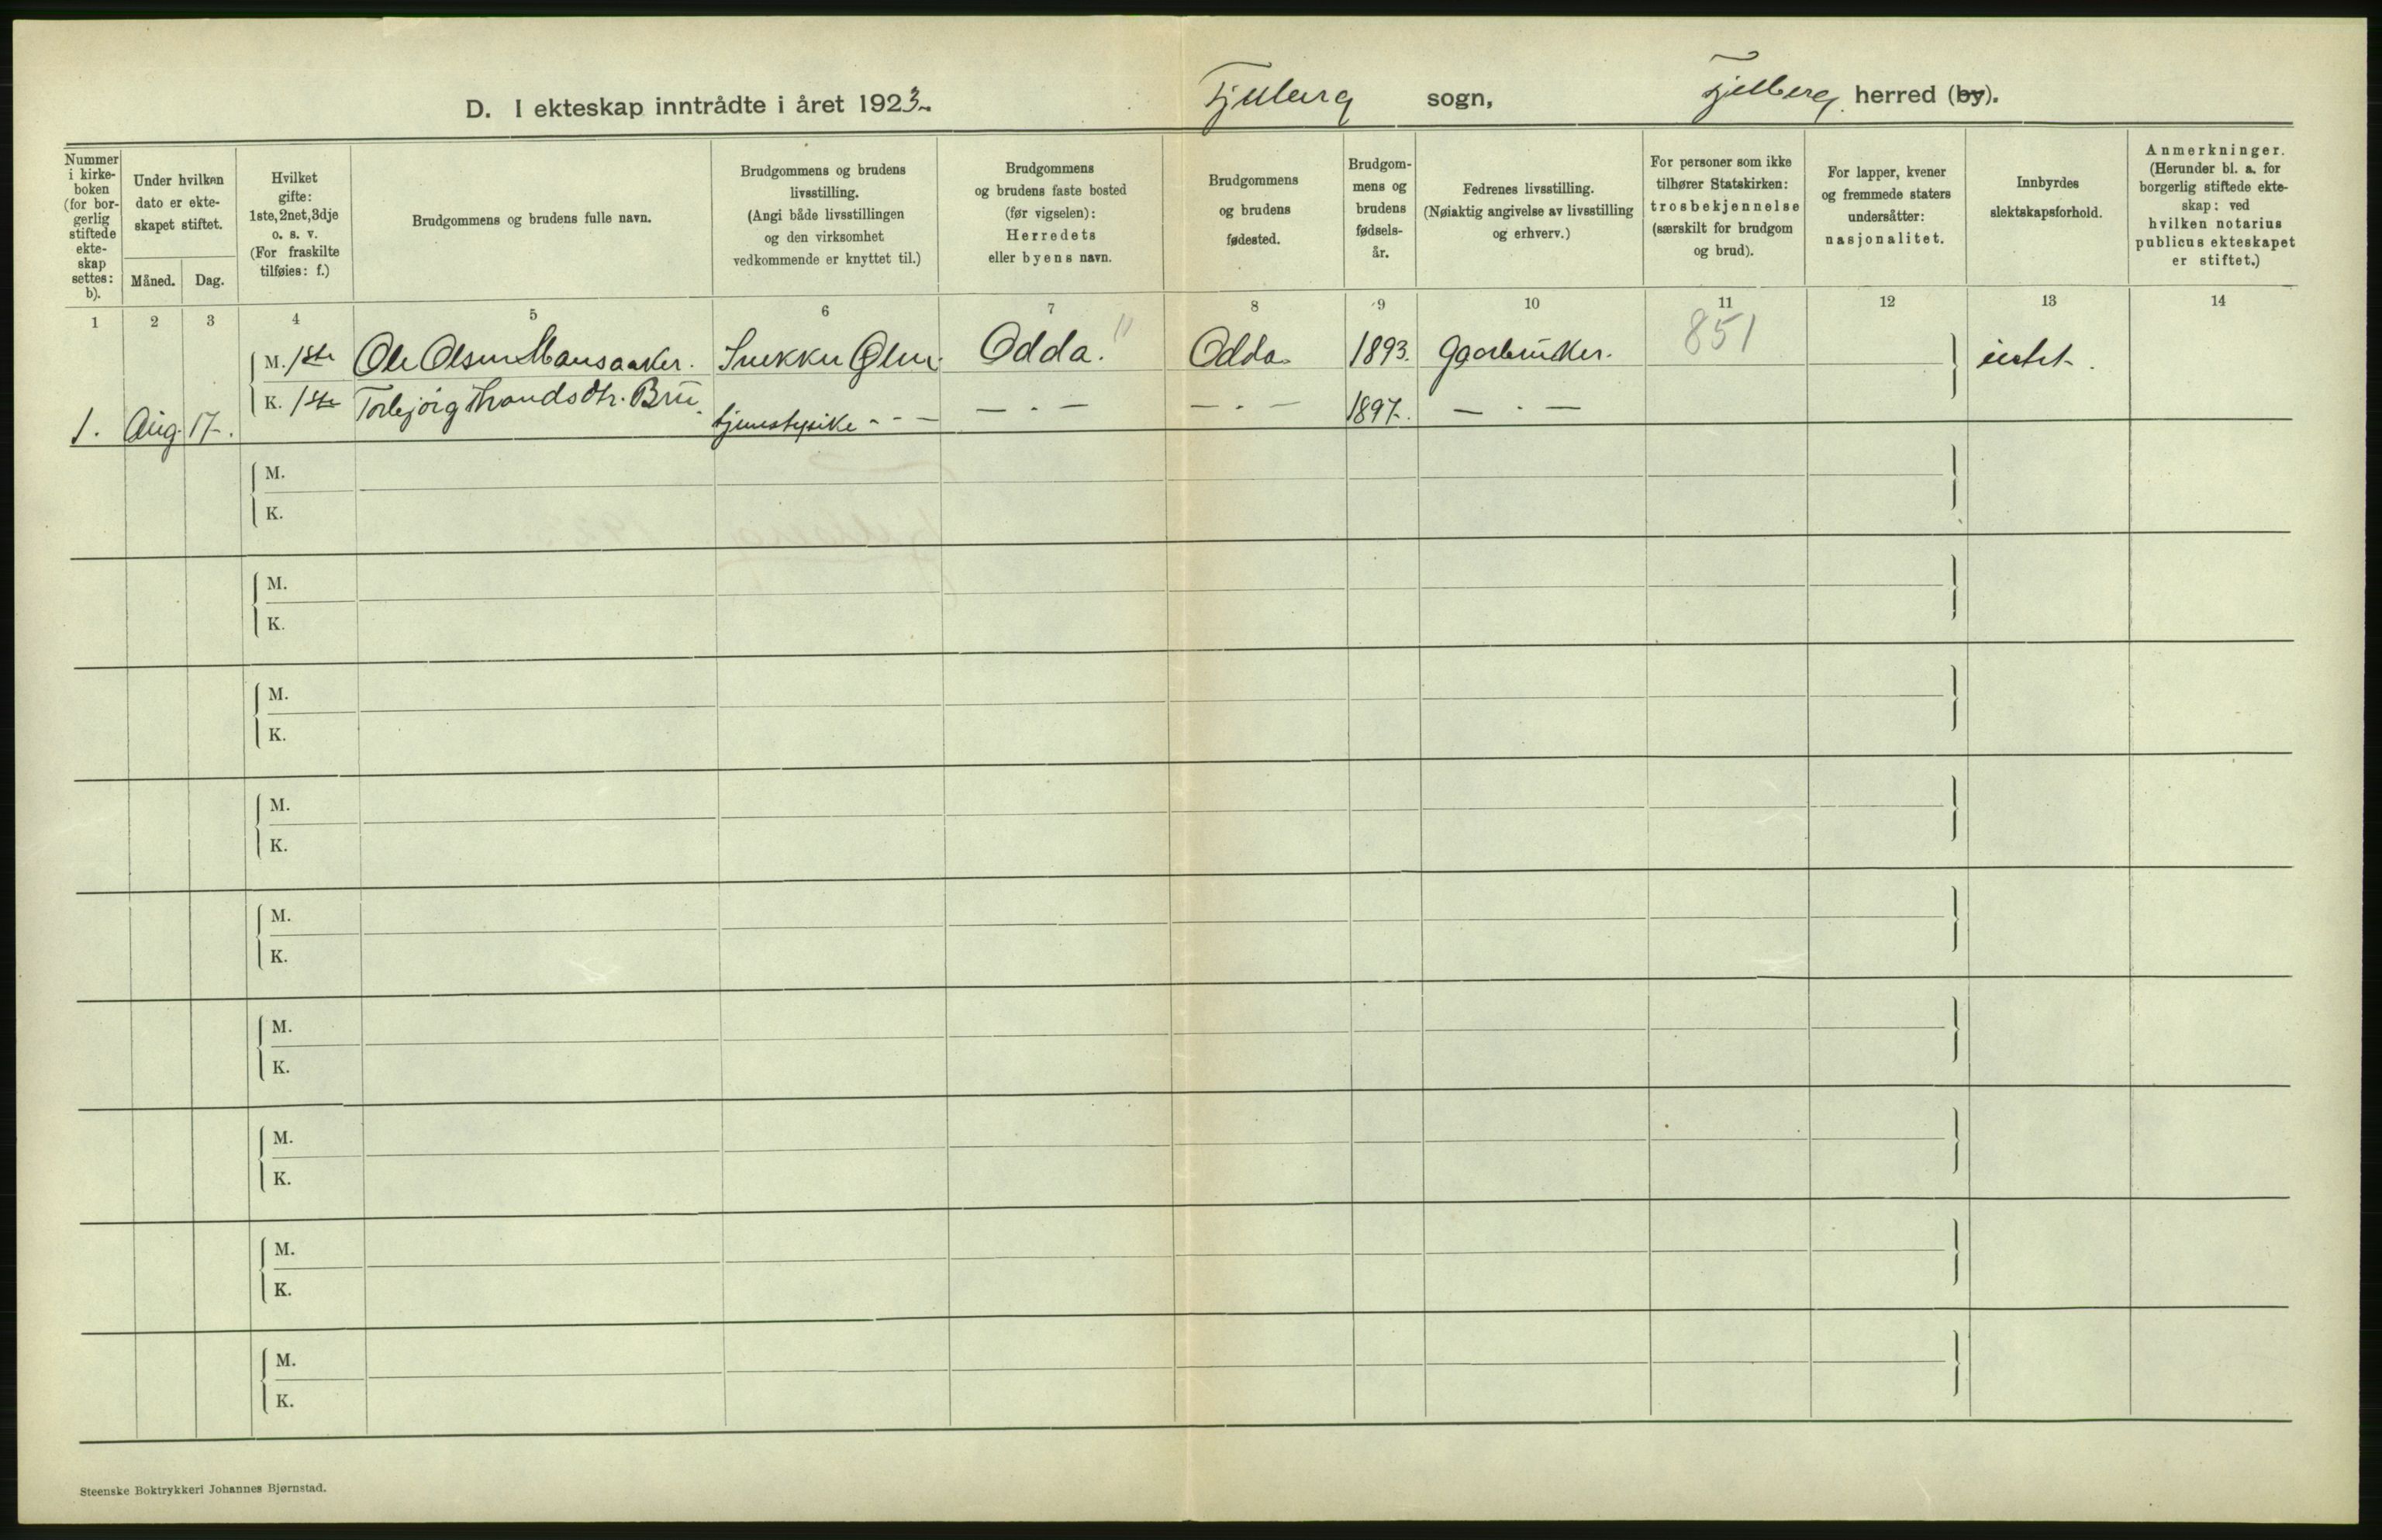 D. I ekteskap inntrådte i året 1923.
Fjelberg sogn, Fjelberg herred (by).
Nummer
i kirke-
boken
(for bor-
gerlig
stiftede
ekte-
skap
settes:
b).
Under hvilken
dato er ekte-
skapet stiftet.
Måned. Dag.
Hvilket
gifte:
1ste, 2net, 3dje
o. s. v.
(For fraskilte
tilføies: f.)
Brudgommens og brudens fulle navn.
Brudgommens og brudens
livsstilling.
(Angi både livsstillingen
og den virksomhet
vedkommende er knyttet til.)
Brudgommens
og brudens faste bosted
(før vigselen):
Herredets
eller byens navn.
Brudgommens
og brudens
fødested.
Brudgom-
mens og
brudens
fødsels-
år.
Fedrenes livsstilling.
(Nøiaktig angivelse av livsstilling
og erhverv.)
For personer som ikke
tilhører Statskirken:
trosbekjennelse
(særskilt for brudgom
og brud).
For lapper, kvener
og fremmede staters
undersåtter:
nasjonalitet.
Innbyrdes
slektskapsforhold.
Anmerkninger.
(Herunder bl. a. for
borgerlig stiftede ekte-
skap: ved
hvilken notarius
publicus ekteskapet
er stiftet.)
1 2 3 4 5 6 7 8 9 10 11 12 13 14
M. 1ste Ole Olsen Mansaaker. Snekker Ølen Odda. " Odda 1893. Gaarbruker. 851 intet.
1. Aug. 17. K. 1ste Torbjørg Thronds dtr. Bru. tjenestepike - - — — · — — · — 1897. — · —
M.
K.
M.
K.
M.
K.
M.
K.
M.
K.
M.
K.
M.
K.
M.
K.
M.
K.
Steenske Boktrykkeri Johannes Bjørnstad.